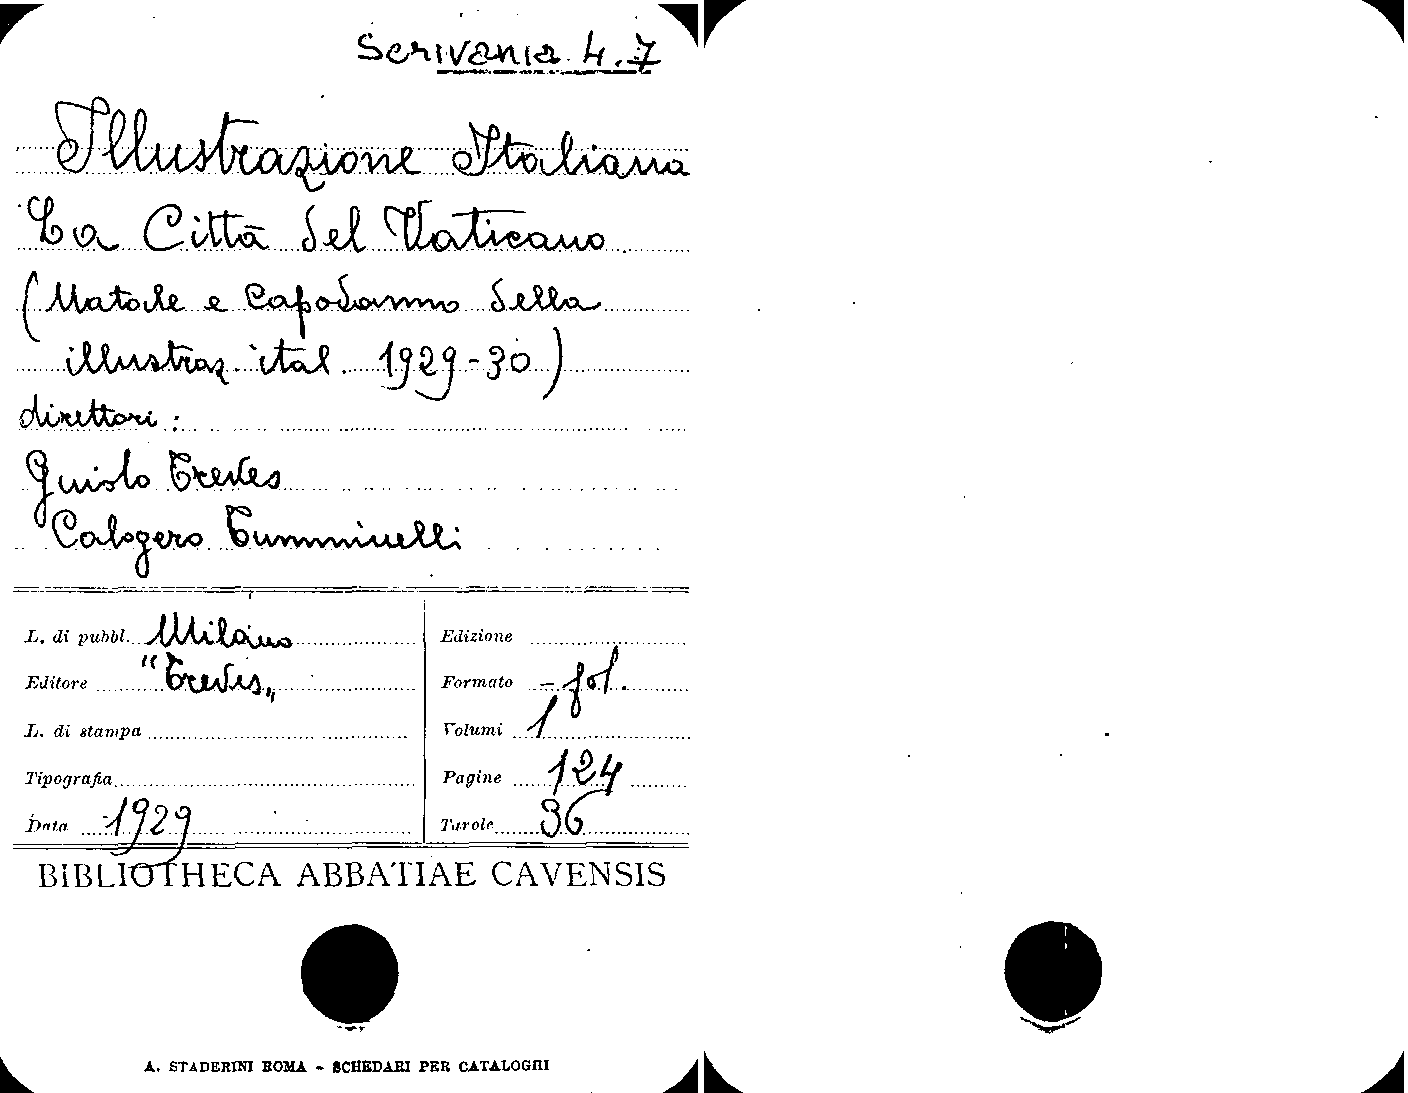 Scrivania 4.7
Illustrazione Italiana
La Città del Vaticano
(Natale e Capodanno della
illustraz. ital. 1929-30)
direttori:
Guido Treves
Calogero Tumminelli
L. di pubbl. Milano
Editore "Treves"
L. di stampa
Tipografia
Data 1929
Edizione
Formato - fol.
Volumi 1
Pagine 124
Tavole 36
BIBLIOTHECA ABBATIAE CAVENSIS
A. STADERINI ROMA - SCHEDARI PER CATALOGHI